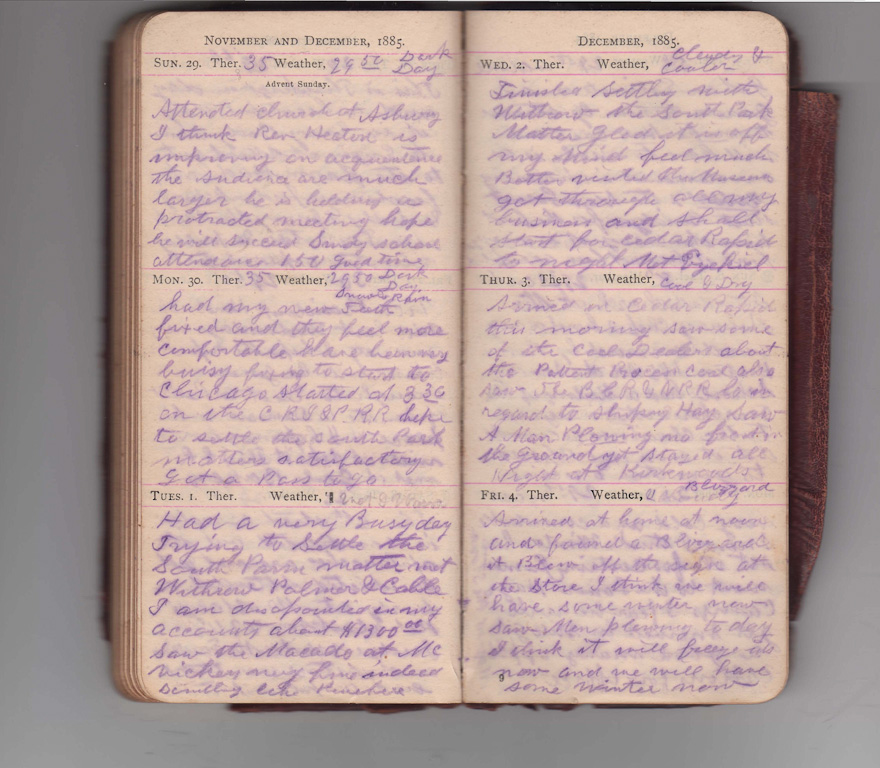 NOVEMBER AND DECEMBER, 1885.
SUN. 29. Ther. 35 Weather, 29 50 Dark
Day
Advent Sunday.
Attended church at Asbury
I think Rev Heaton is
improving on acquentence
the audience are much
larger he is holding a
protracted meeting hope
he will succeed Sunday school
attendance 150 good time
MON. 30. Ther. 35 Weather, 29 50 Dark
Day
Rain
had my new Teeth
fixed and they feel more
comfortable have been very
busy fixing to start to
Chicago Started at 3 30
on the C R I & P R R hope
to settle the South Park
matters satisfactory
Got a Pass to go
TUES. 1. Ther. Weather,
Had a very Busy day
Trying to Settle the
South Park matter met
Withrow Palmer & Cable
I am disappointed in my
accounts about $1300 00
Saw the Macado at Mc
Vickers very fine indeed
DECEMBER, 1885.
WED. 2. Ther. Weather, Cloudy &
Cooler
Finished Settling with
Withrow the South Park
Matter Glad it is off
my Mind feel much
Better visited the Museum
got through all my
business and shall
start for Cedar Rapids
to night Met Ezekiel
THUR. 3. Ther. Weather, Cool & Dry
Arrived in Cedar Rapids
this morning saw some
of the Coal Dealers about
the Patent Process coal also
saw the B C R & N R R in
regard to shiping Hay Saw
A Man Plowing no frost in
the Ground yet Stayed all
Night at Kirkwoods
FRI. 4. Ther. Weather, Blizzard
Arrived at home at noon
and found a Blizzard
it Blew off the sign at
the Store I think we will
have some winter now
saw Men plowing to day
I think it will freeze up
now and we will have
some winter now
9